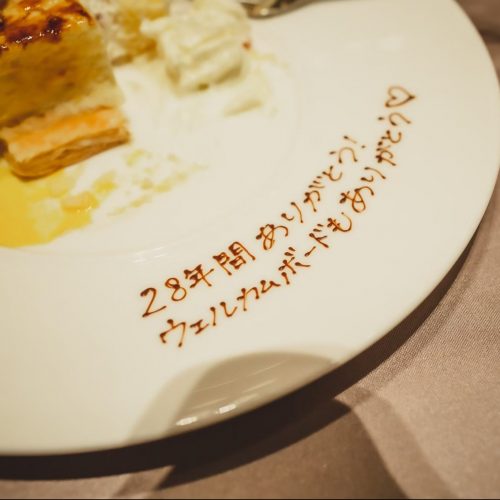 28年間ありがとう!
ウェルカムボードもありがとう♡